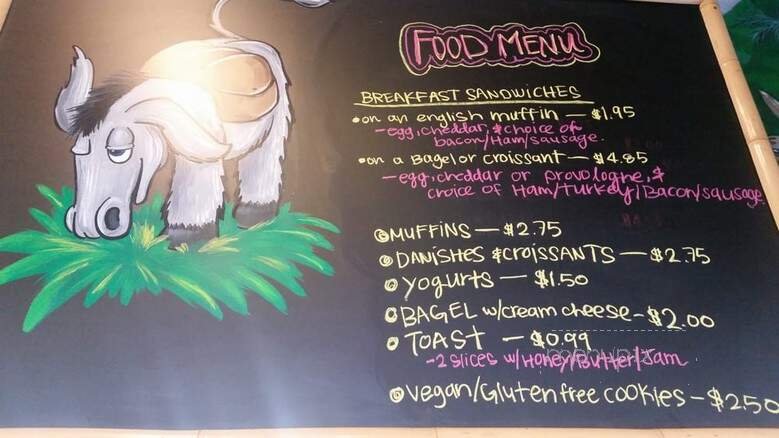 FOOD MENU
BREAKFAST SANDWICHES
• on an english muffin — $1.95
- egg, cheddar, & choice of
bacon/Ham/sausage.
• on a Bagel or croissant — $4.85
- egg, cheddar or provologne, &
choice of Ham/turkey/Bacon/sausage.
• MUFFINS — $2.75
• DANISHES & CROISSANTS — $2.75
• Yogurts — $1.50
• BAGEL w/cream cheese - $2.00
• TOAST — $0.99
- 2 slices w/Honey/Butter/Jam
• vegan/Gluten free cookies - $2.50